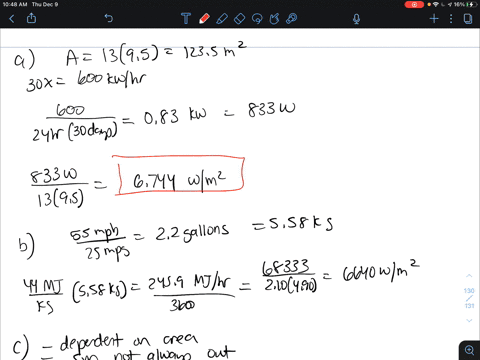 10:48 AM Thu Dec 9
16%
a) A = 13(9.5) = 123.5 m²
30x = 600 kw/hr
600 / 24hr (30 days) = 0.83 kW = 833 W
833 W / 13(9.5) = 6.744 W/m²
b) 55 mph / 25 mpg = 2.2 gallons = 5.58 kg
44 MJ / kg (5.58 kg) = 245.9 MJ/hr / 3600 = 68333 / 2.10(4.90) = 6640 W/m²
c) = dependent on area
= sun not always out
130
/
131